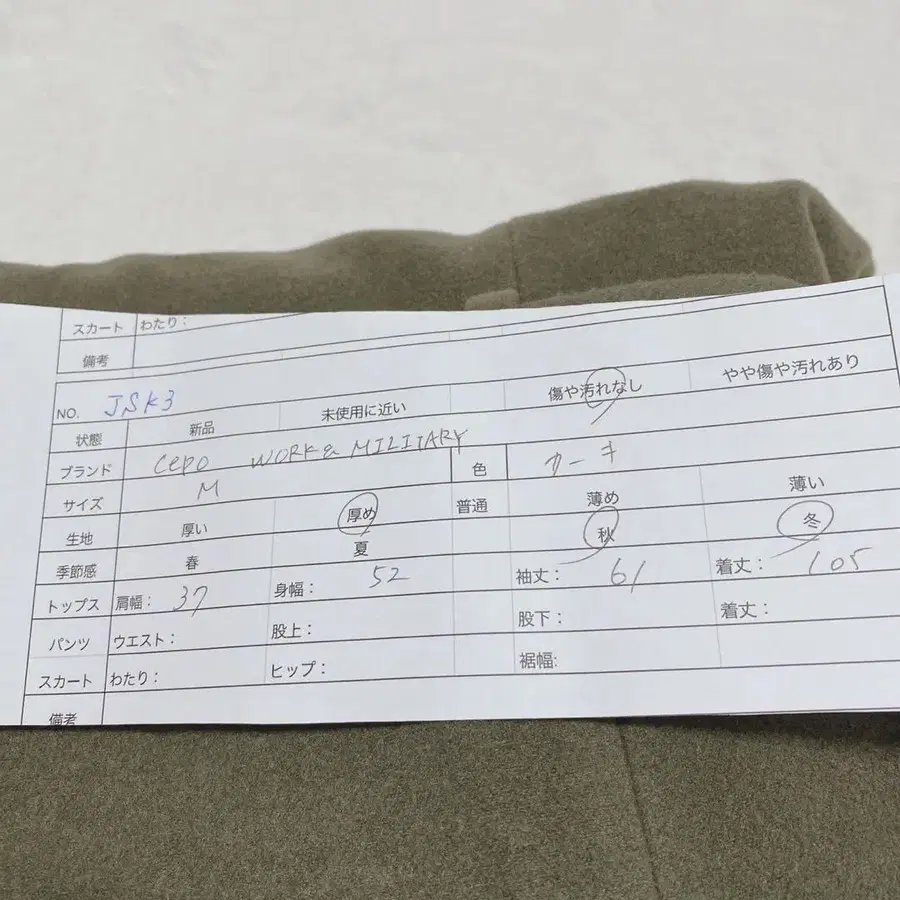 スカート わたり：
備考
NO. JSK3
状態 新品 未使用に近い 傷や汚れなし やや傷や汚れあり
ブランド cepo WORK & MILITARY 色 カーキ
サイズ M
生地 厚い 厚め 普通 薄め 薄い
季節感 春 夏 秋 冬
トップス 肩幅： 37 身幅： 52 袖丈： 61 着丈： 105
パンツ ウエスト： 股上： 股下： 着丈：
スカート わたり： ヒップ： 裾幅:
備考